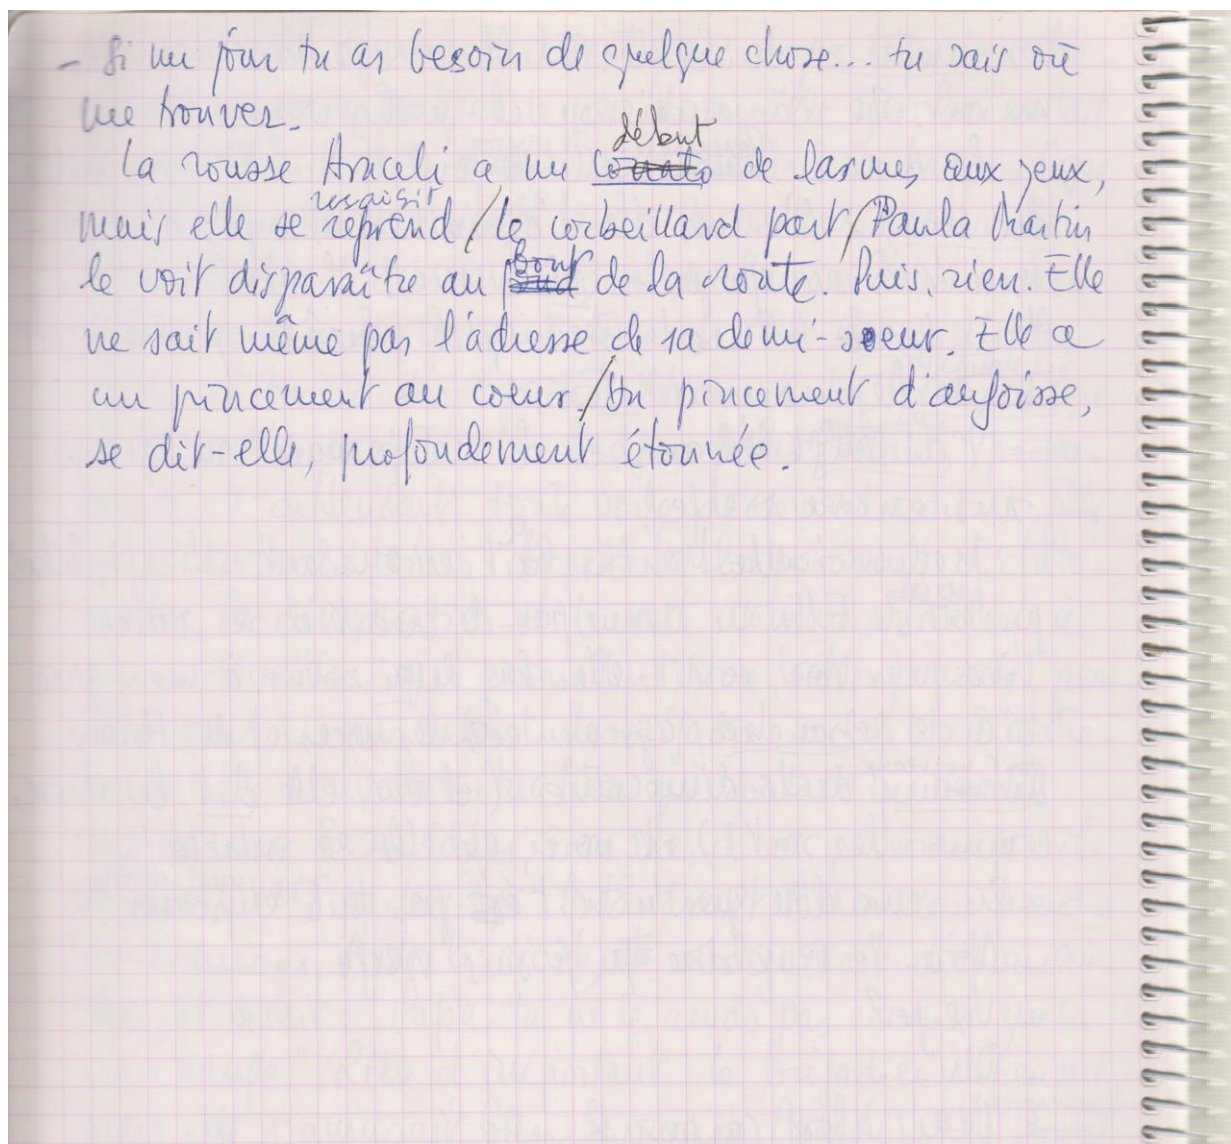 - Si un jour tu as besoin de quelque chose... tu sais où
me trouver.
début
La rousse Araceli a un conato de larmes aux yeux,
ressaisit
mais elle se reprend / le corbeillard part / Paula Martin
bout
le voit disparaître au de la route. Puis, rien. Elle
ne sait même pas l'adresse de sa demi-soeur. Elle a
un pincement au coeur. / Un pincement d'angoisse,
se dit-elle, profondement étonnée.